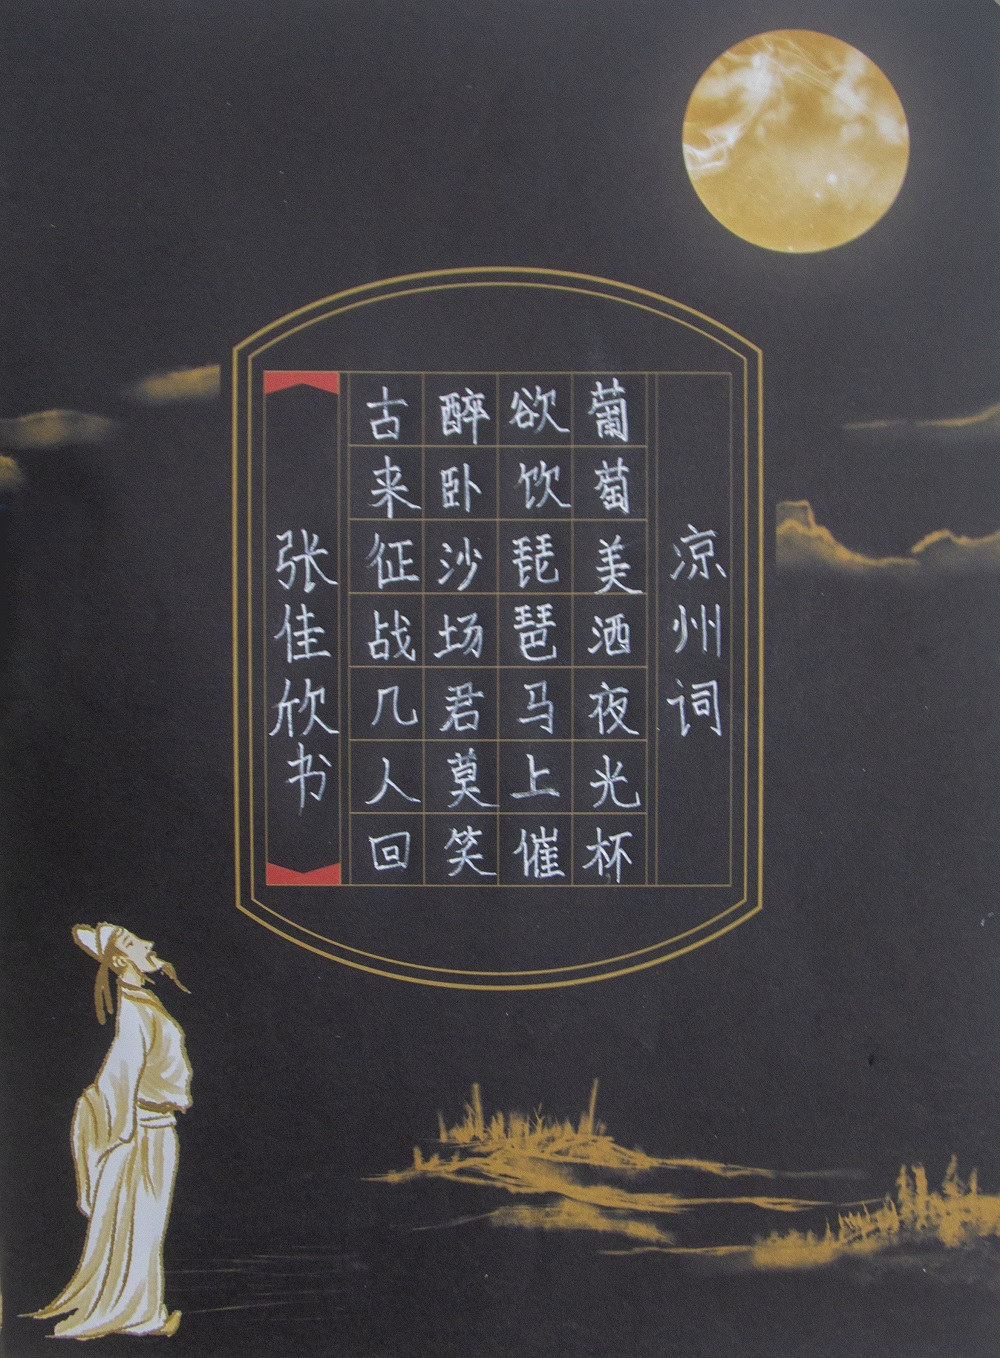 凉州词
葡萄美洒夜光杯
欲饮琵琶马上催
醉卧沙场君莫笑
古来征战几人回
张佳欣书